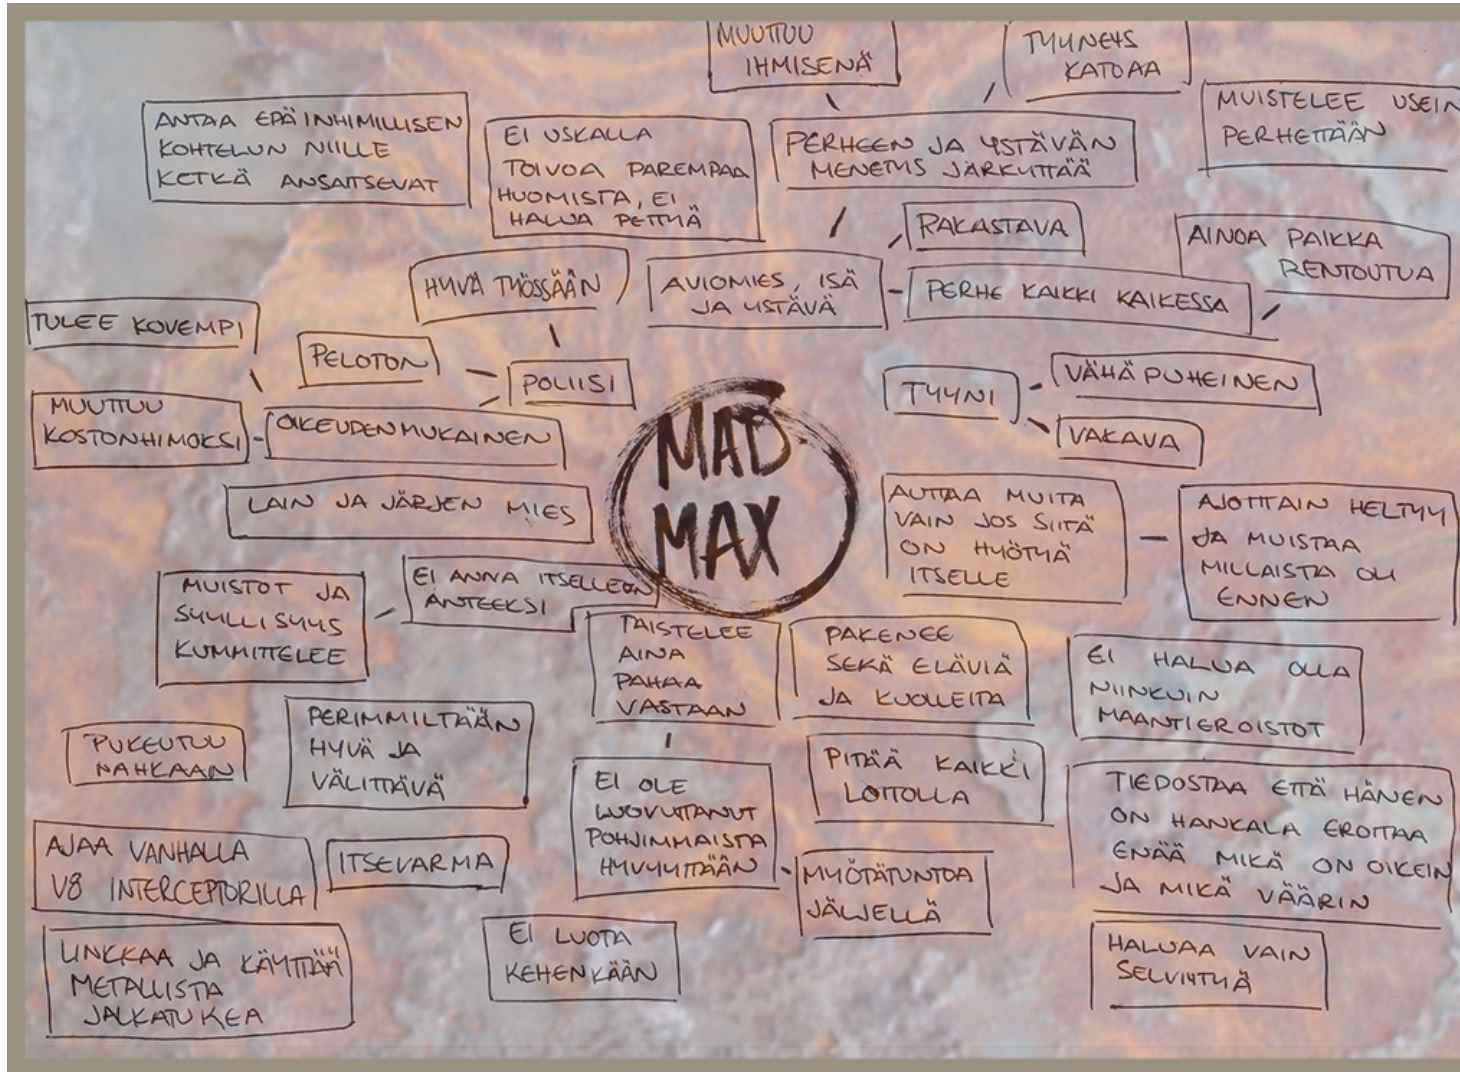 MUUTTUU
IHMISENÄ
TYYNEYS
KATOAA
MUISTELEE USEIN
PERHETTÄÄN
ANTAA EPÄINHIMILLISEN
KOHTELUN NIILLE
KETKÄ ANSAITSEVAT
EI USKALLA
TOIVOA PAREMPAA
HUOMISTA, EI
HALUA PETTYÄ
PERHEEN JA YSTÄVÄN
MENETYS JÄRKYTTÄÄ
RAKASTAVA
AINOA PAIKKA
RENTOUTUA
HYVÄ TYÖSSÄÄN
AVIOMIES, ISÄ
JA YSTÄVÄ
PERHE KAIKKI KAIKESSA
TULEE KOVEMPI
PELOTON
POLIISI
TYYNI
VÄHÄPUHEINEN
VAKAVA
MUUTTUU
KOSTONHIMOKSI
OIKEUDENMUKAINEN
MAD
MAX
LAIN JA JÄRJEN MIES
AUTTAA MUITA
VAIN JOS SIITÄ
ON HYÖTYÄ
ITSELLE
AJOITTAIN HELTYY
JA MUISTAA
MILLAISTA OLI
ENNEN
MUISTOT JA
SYYLLISYYS
KUMMITTELEE
EI ANNA ITSELLEEN
ANTEEKSI
TAISTELEE
AINA
PAHAA
VASTAAN
PAKENEE
SEKÄ ELÄVIÄ
JA KUOLLEITA
EI HALUA OLLA
NIINKUIN
MAANTIEROISTOT
PUKEUTUU
NAHKAAN
PERIMMILTÄÄN
HYVÄ JA
VÄLITTÄVÄ
EI OLE
LUOVUTTANUT
POHJIMMAISTA
HYVYYTTÄÄN
PITÄÄ KAIKKI
LOITOLLA
TIEDOSTAA ETTÄ HÄNEN
ON HANKALA EROITTAA
ENÄÄ MIKÄ ON OIKEIN
JA MIKÄ VÄÄRIN
AJAA VANHALLA
V8 INTERCEPTORILLA
ITSEVARMA
MYÖTÄTUNTOA
JÄLJELLÄ
LINKKAA JA KÄYTTÄÄ
METALLISTA
JALKATUKEA
EI LUOTA
KEHENKÄÄN
HALUAA VAIN
SELVIYTYÄ